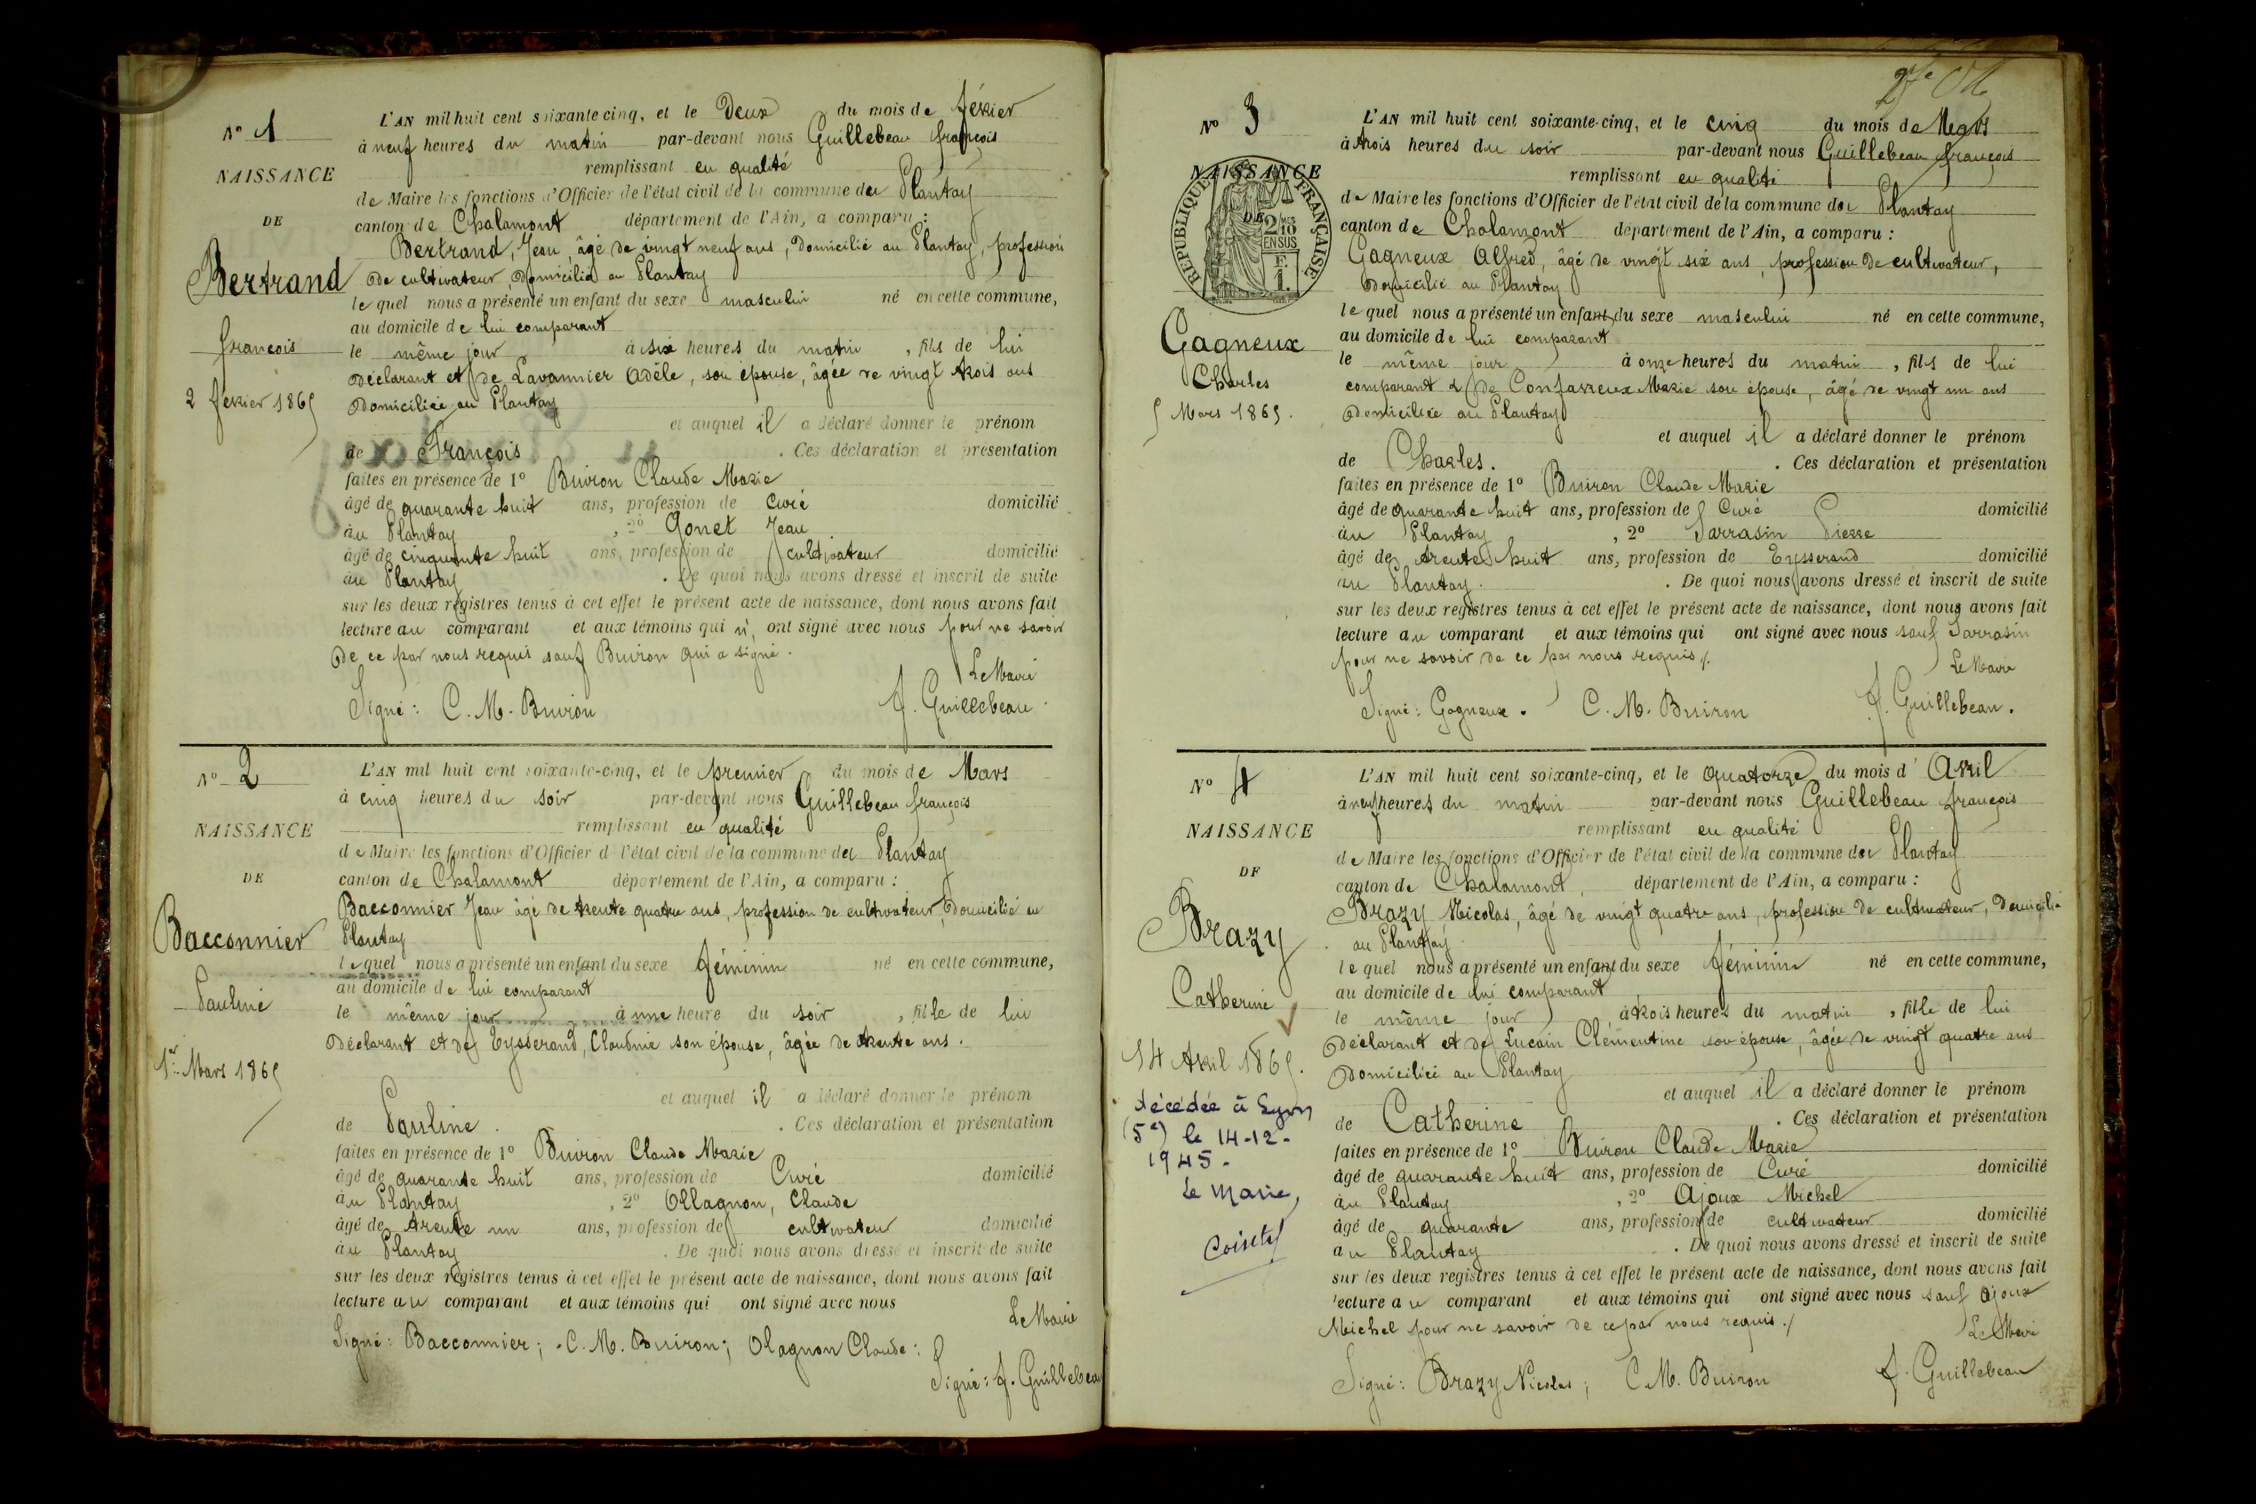 N° 1
NAISSANCE
DE
Bertrand
françois
2 février 1865
L'AN mil huit cent soixante cinq, et le Deux du mois de février
à neuf heures du matin par-devant nous Guillebeau françois
remplissant en qualité
de Maire les fonctions d'Officier de l'état civil de la commune du Plantay
canton de Chalamont département de l'Ain, a comparu :
Bertrand, Jean, âgé de vingt neuf ans, Domicilié au Plantay, profession
de cultivateur, Domicilié au Plantay
lequel nous a présenté un enfant du sexe masculin né en cette commune,
au domicile de lui comparant
le même jour à six heures du matin, fils de lui
Déclarant et de Lavannier Adèle, son épouse, âgée de vingt trois ans
Domiciliée au Plantay
et auquel il a déclaré donner le prénom
de François. Ces déclaration et présentation
faites en présence de 1° Buiron Claude Marie
âgé de quarante huit ans, profession de Curé domicilié
au Plantay, 2° Gonet Jean
âgé de cinquante huit ans, profession de cultivateur domicilié
au Plantay. De quoi nous avons dressé et inscrit de suite
sur les deux registres tenus à cet effet le présent acte de naissance, dont nous avons fait
lecture au comparant et aux témoins qui n'ont signé avec nous pour ne savoir
de ce par nous requis sauf Buiron qui a signé.
Le Maire
Signé : C. M. Buiron f. Guillebeau.
N° 2
NAISSANCE
DE
Bacconnier
Pauline
1er Mars 1865
L'AN mil huit cent soixante-cinq, et le premier du mois de Mars
à cinq heures du soir par-devant nous Guillebeau françois
remplissant en qualité
de Maire les fonctions d'Officier de l'état civil de la commune du Plantay
canton de Chalamont département de l'Ain, a comparu :
Bacconnier Jean âgé de trente quatre ans, profession de cultivateur, Domicilié au
Plantay
lequel nous a présenté un enfant du sexe féminin né en cette commune,
au domicile de lui comparant
le même jour à une heure du soir, fille de lui
Déclarant et de Eysserand, Claudine son épouse, âgée de trente ans.
et auquel il a déclaré donner le prénom
de Pauline. Ces déclaration et présentation
faites en présence de 1° Buiron Claude Marie
âgé de quarante huit ans, profession de Curé domicilié
au Plantay, 2° Ollagnon, Claude
âgé de trente un ans, profession de cultivateur domicilié
au Plantay. De quoi nous avons dressé et inscrit de suite
sur les deux registres tenus à cet effet le présent acte de naissance, dont nous avons fait
lecture au comparant et aux témoins qui ont signé avec nous
Le Maire
Signé : Bacconnier ; C. M. Buiron ; Olagnon Claude :
Signé : f. Guillebeau
N° 3
NAISSANCE
DE
RÉPUBLIQUE FRANÇAISE
2/10 EN SUS
F.
1.
Gagneux
Charles
5 Mars 1865.
L'AN mil huit cent soixante-cinq, et le cinq du mois de Mars
à trois heures du soir par-devant nous Guillebeau françois
remplissant en qualité
de Maire les fonctions d'Officier de l'état civil de la commune du Plantay
canton de Chalamont département de l'Ain, a comparu :
Gagneux Alfred, âgé de vingt six ans, profession de cultivateur,
Domicilié au Plantay
lequel nous a présenté un enfant du sexe masculin né en cette commune,
au domicile de lui comparant
le même jour à onze heures du matin, fils de lui
comparant & de Confavreux Marie son épouse, âgé de vingt un ans
Domiciliée au Plantay
et auquel il a déclaré donner le prénom
de Charles. Ces déclaration et présentation
faites en présence de 1° Buiron Claude Marie
âgé de quarante huit ans, profession de Curé domicilié
au Plantay, 2° Sarrasin Pierre
âgé de trente huit ans, profession de Eysserand domicilié
au Plantay. De quoi nous avons dressé et inscrit de suite
sur les deux registres tenus à cet effet le présent acte de naissance, dont nous avons fait
lecture au comparant et aux témoins qui ont signé avec nous sauf Sarrasin
pour ne savoir de ce par nous requis./.
Le Maire
Signé : Gagneux. C. M. Buiron f. Guillebeau.
N° 4
NAISSANCE
DE
Brazy
Catherine
14 Avril 1865.
décédée à Lyon
(5e) le 14-12-
1945.
Le Maire,
L'AN mil huit cent soixante-cinq, et le quatorze du mois d'Avril
à neuf heures du matin par-devant nous Guillebeau françois
remplissant en qualité
de Maire les fonctions d'Officier de l'état civil de la commune du Plantay
canton de Chalamont, département de l'Ain, a comparu :
Brazy Nicolas, âgé de vingt quatre ans, profession de cultivateur, Domicilié
au Plantay
lequel nous a présenté un enfant du sexe féminin né en cette commune,
au domicile de lui comparant
le même jour à trois heures du matin, fille de lui
Déclarant et de Lucain Clémentine son épouse, âgée de vingt quatre ans
Domiciliée au Plantay
et auquel il a déclaré donner le prénom
de Catherine. Ces déclaration et présentation
faites en présence de 1° Buiron Claude Marie
âgé de quarante huit ans, profession de Curé domicilié
au Plantay, 2° Ajoux Michel
âgé de quarante ans, profession de cultivateur domicilié
au Plantay. De quoi nous avons dressé et inscrit de suite
sur les deux registres tenus à cet effet le présent acte de naissance, dont nous avons fait
lecture au comparant et aux témoins qui ont signé avec nous sauf Ajoux
Michel pour ne savoir de ce par nous requis./
Le Maire
Signé : Brazy Nicolas ; C. M. Buiron f. Guillebeau